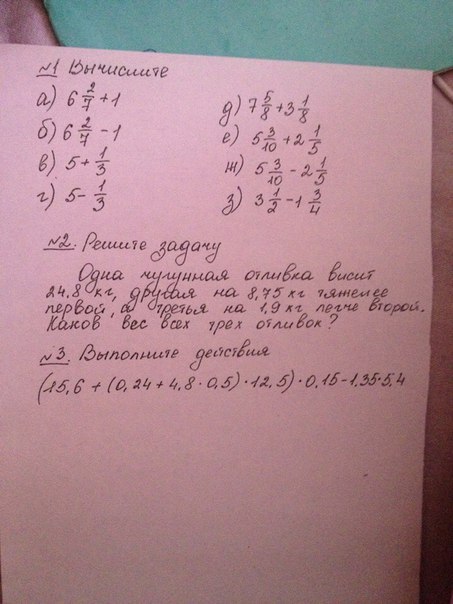 №1 Вычислите
а) 6 2/7 + 1
б) 6 2/7 - 1
в) 5 + 1/3
г) 5 - 1/3
д) 7 5/8 + 3 1/8
е) 5 3/10 + 2 1/5
ж) 5 3/10 - 2 1/5
з) 3 1/2 - 1 3/4
№2. Решите задачу
Одна чугунная отливка висит
24,8 кг, другая на 8,75 кг тяжелее
первой, а третья на 1,9 кг легче второй.
Каков вес всех трех отливок?
№3. Выполните действия
(15,6 + (0,24 + 4,8 · 0,5) · 12,5) · 0,15 - 1,35 · 5,4